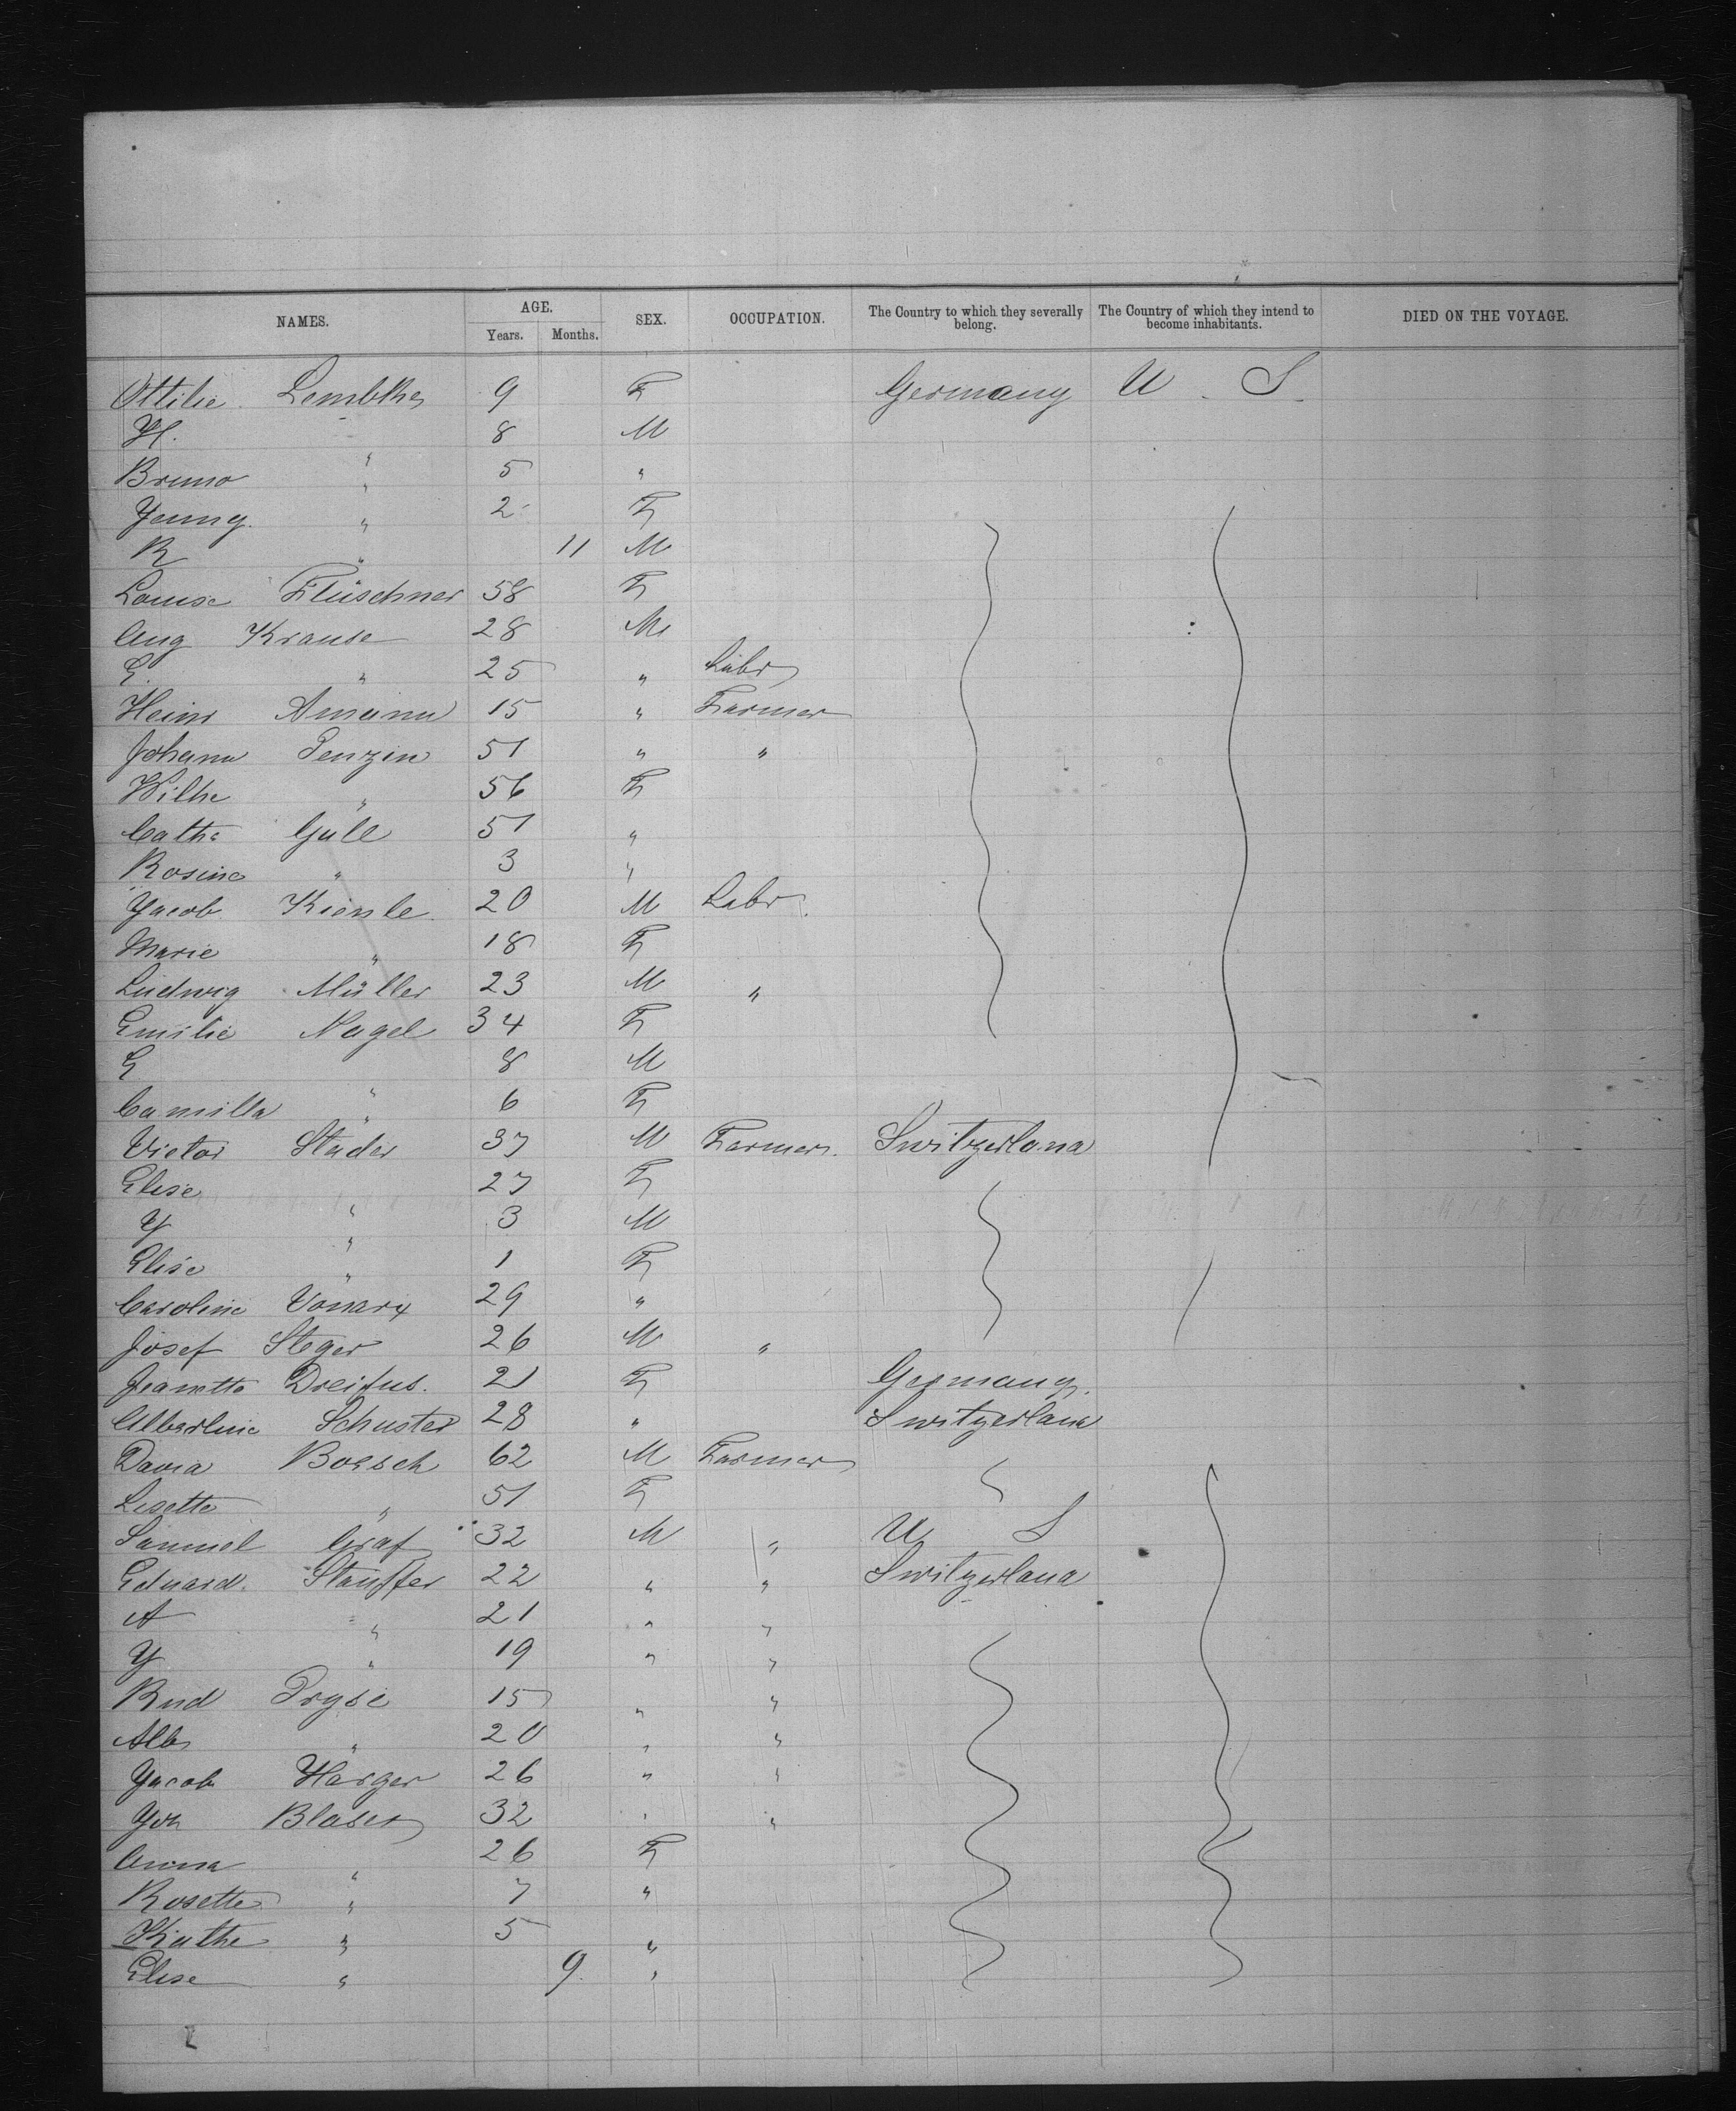 NAMES. AGE. Years. Months. SEX. OCCUPATION. The Country to which they severally belong. The Country of which they intend to become inhabitants. DIED ON THE VOYAGE.
Ottilie Lembkes 9 F Germany U. S.
H. " 8 M
Bruno " 5 "
Jenny. " 2 F
R " 11 M
Louise Flüschner 58 F
Aug Krause 28 M
G. " 25 " Labr
Heinr Amann 15 " Farmer
Johann Penzin 51 " "
Wilhe " 56 F
Cathe Gull 51 "
Rosine " 3 "
Jacob Kienle 20 M Labr.
Marie " 18 F
Ludwig Müller 23 M "
Emilie Nagel 34 F
G " 8 M
Camilla " 6 F
Victor Studer 37 M Farmer. Switzerland
Elise " 27 F
J " 3 M
Elise " 1 F
Caroline 29 "
Josef Steger 26 M "
Jeanette Dreifus. 21 F Germany.
Albertine Schuster 28 " Switzerland
David Boesch 62 M Farmer
Lisette " 51 F
Samuel Graf 32 M " U S
Eduard. Stauffer 22 " " Switzerland
A " 21 " "
J " 19 " "
Rud 15 " "
Alb " 20 " "
Jacob Harger 26 " "
Joh Blaser 32 " "
Anna " 26 F
Rosette " 7 "
Kathe " 5 "
Elise " 9. "